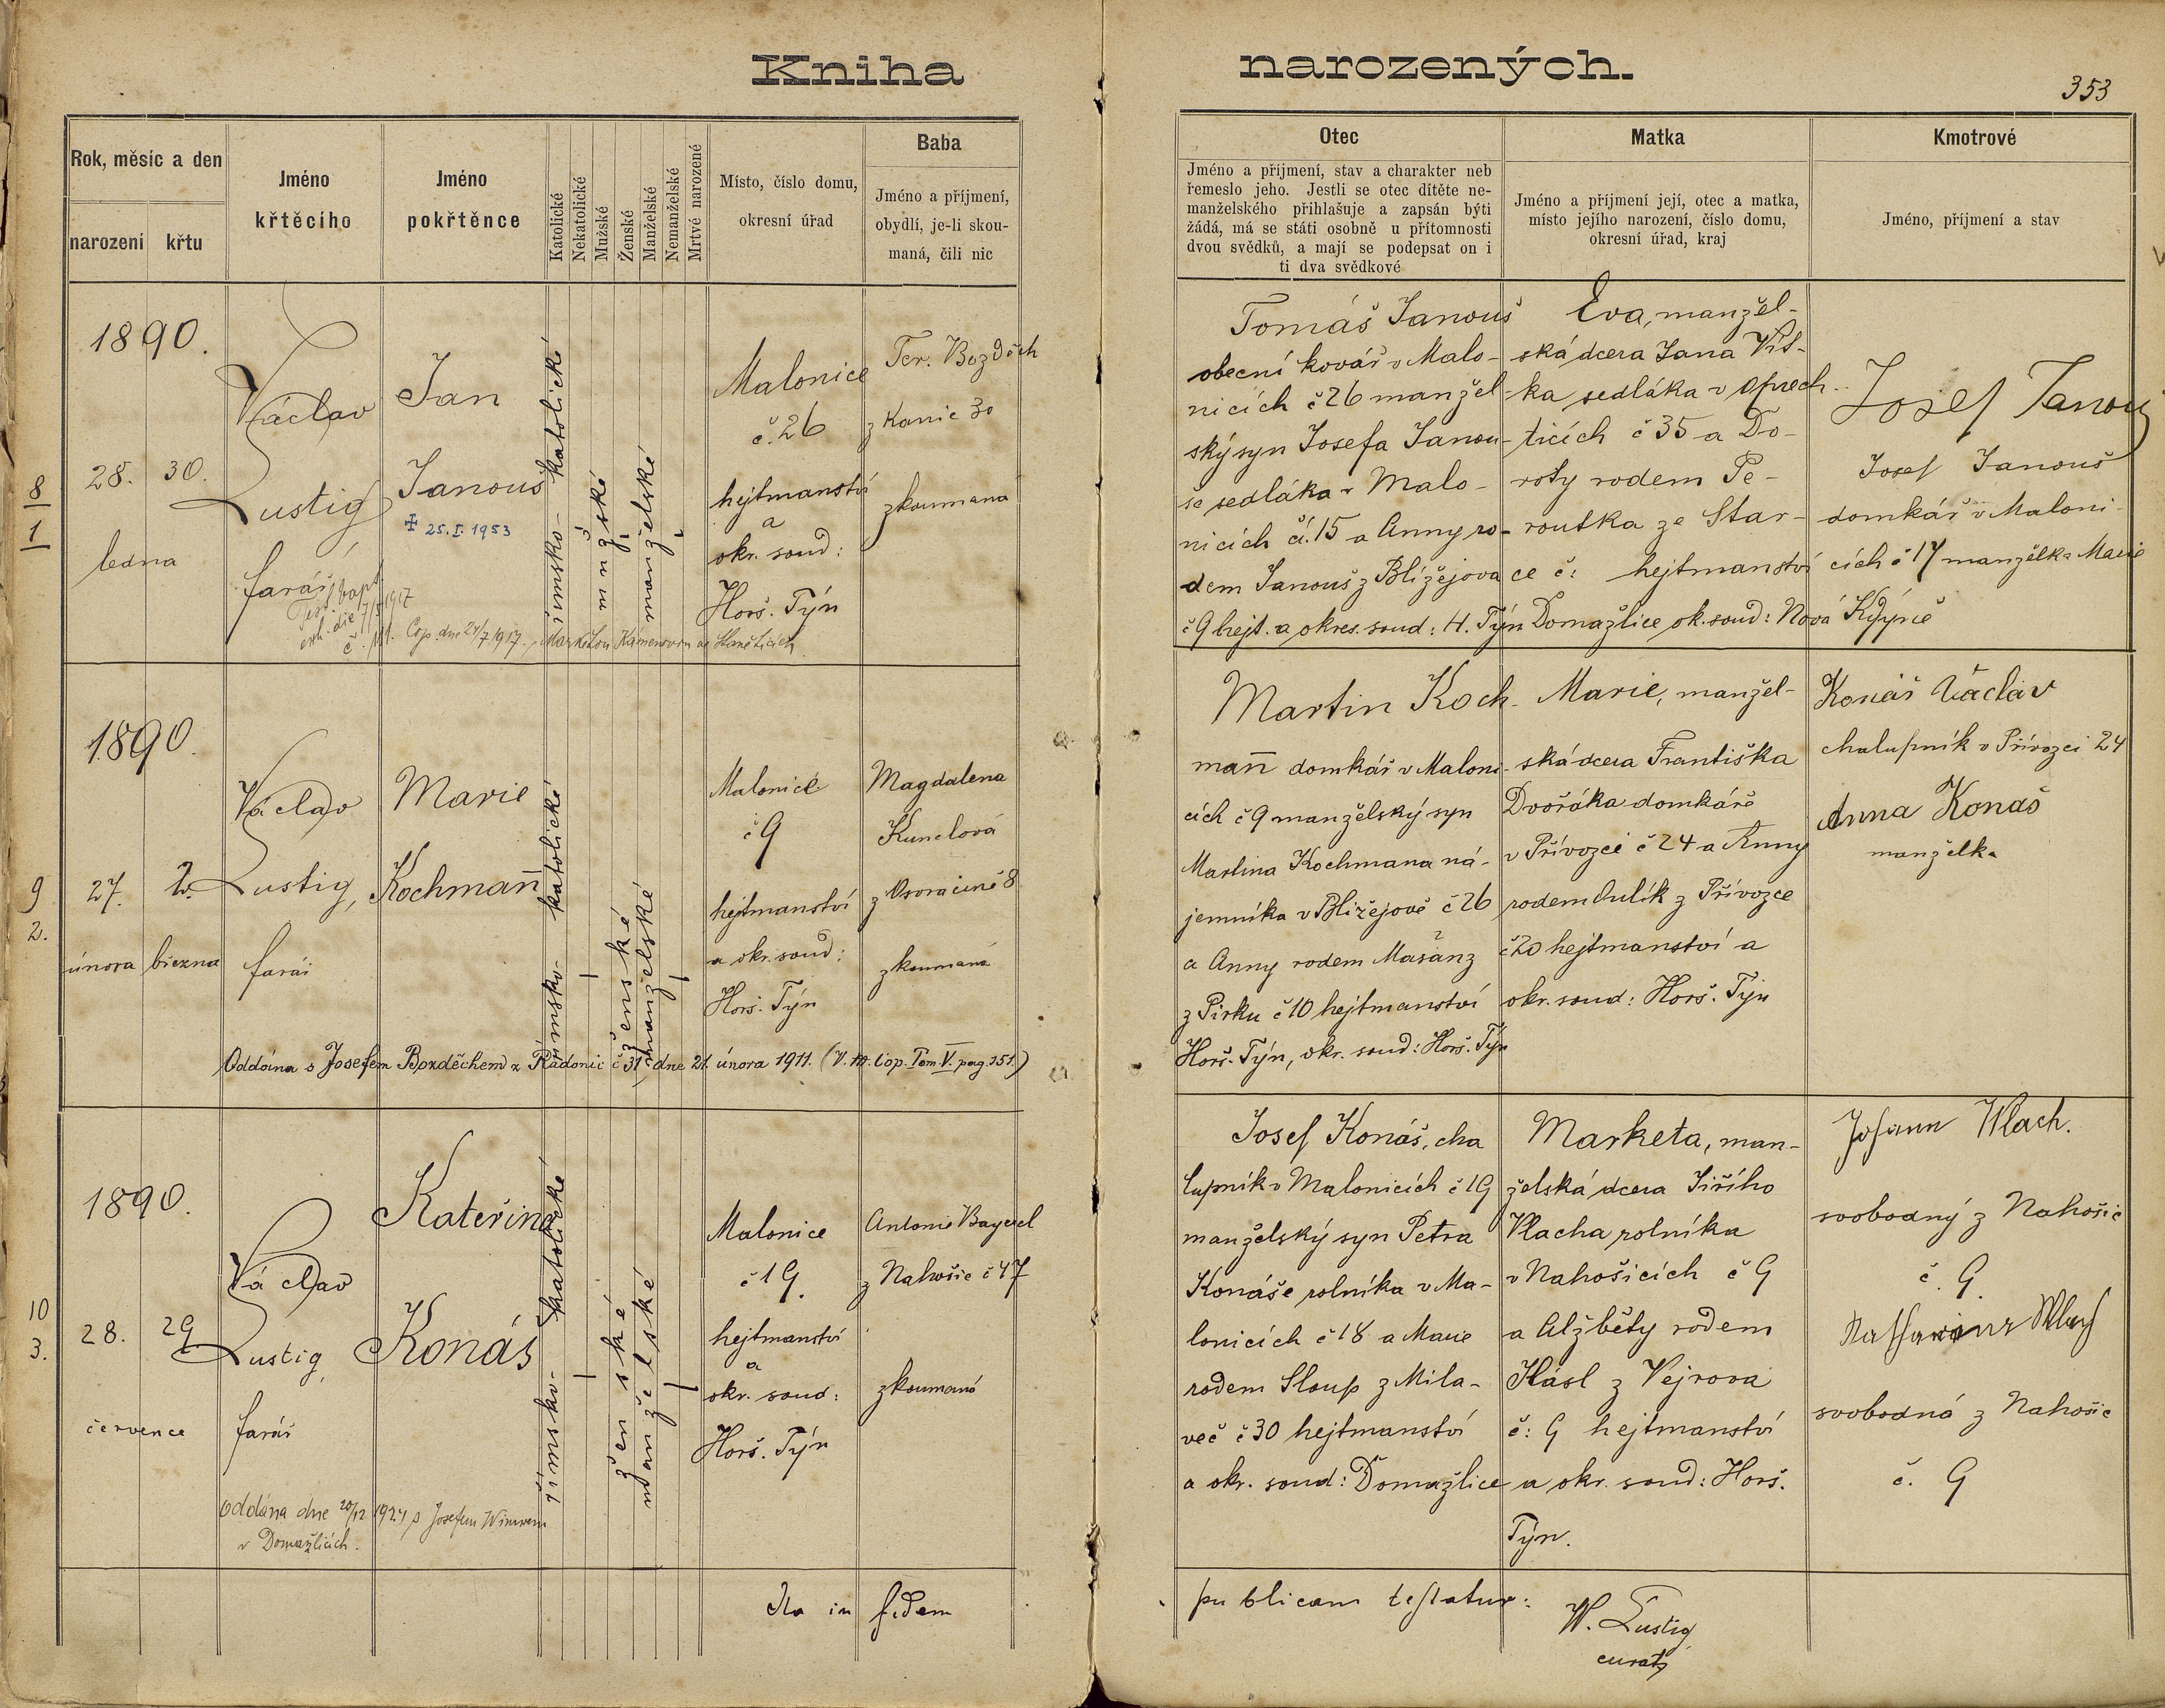 Kniha narozených.
353
Rok, měsíc a den
narození
křtu
Jméno
křtěcího
Jméno
pokřtěnce
Katolické
Nekatolické
Mužské
Ženské
Manželské
Nemanželské
Mrtvé narozené
Místo, číslo domu,
okresní úřad
Baba
Jméno a příjmení,
obydlí, je-li skou-
maná, čili nic
Otec
Jméno a příjmení, stav a charakter neb
řemeslo jeho. Jestli se otec dítěte ne-
manželského přihlašuje a zapsán býti
žádá, má se státi osobně u přítomnosti
dvou svědků, a mají se podepsat on i
ti dva svědkové
Matka
Jméno a příjmení její, otec a matka,
místo jejího narození, číslo domu,
okresní úřad, kraj
Kmotrové
Jméno, příjmení a stav
8
1
1890.
28. 30.
ledna
Václav
Lustig
farář
Jan
Janouš
✠ 25.I.1953
římsko-katolické
mužské
manželské
Malonice
č. 26
hejtmanství
a
okr. soud:
Horš. Týn
Ter. Bozděch
z Kanic 30
zkoumaná
Cop. dne 24/7 1917.
Tomáš Janouš
obecní kovář v Malo-
nicích č 26 manžel-
ský syn Josefa Janou-
še sedláka v Malo-
nicích čí. 15 a Anny ro-
dem Janouš z Blížejova
č 9 hejt. a okres. soud: H. Týn
Eva, manžel-
ská dcera Jana Vít-
ka sedláka v Oprech-
ticích č 35 a Do-
roty rodem Pe-
routka ze Star-
ce č: hejtmanství
Domažlice ok. soud: Nová Kdýně
Josef Janouš
Josef Janouš
domkář v Maloni-
cích č 17 manželka Marie
9
2.
1890.
27. 2.
února března
Václav
Lustig,
farář
Marie
Kochmañ
římsko-katolické
ženské
manželské
Malonice
č 9
hejtmanství
a okr. soud:
Horš. Týn
Magdalena
Kunclová
z Osvračině 8
zkoumaná
Oddána s Josefem Bozděchem z Radonic č 31, dne 21. února 1911. (V. M. Cop. Tom V. pag. 151.)
Martin Koch-
mañ domkář v Maloni-
cích č 9 manželský syn
Martina Kochmana ná-
jemníka v Blížejově č 26
a Anny rodem Mašanz
z Pirku č 10 hejtmanství
Horš. Týn, okr. soud: Horš. Týn
Marie, manžel-
ská dcera Františka
Dvořáka domkáře
v Přívozci č 24 a Anny
rodem Dulík z Přívozce
č 20 hejtmanství a
okr. soud: Horš. Týn
Konáš Václav
chalupník v Přívozci 24
Anna Konaš
manželka
10
3.
1890.
28. 29
července
Václav
Lustig,
farář
Kateřina
Konáš
římsko-katolické
ženské
manželské
Malonice
č 19.
hejtmanství
a
okr. soud:
Horš. Týn
Antonie Bayerl
z Nahošic č 47
zkoumaná
Oddána dne 20/12 1924 s Josefem
v Domažlicích.
Josef Konáš, cha
lupník v Malonicích č 19
manželský syn Petra
Konáše rolníka v Ma-
lonicích č 18 a Marie
rodem Sloup z Mila-
več č 30 hejtmanství
a okr. soud: Domažlice
Marketa, man-
želská dcera Jiřího
Vlacha rolníka
v Nahošicích č 9
a Alžběty rodem
Hásl z Vejrova
č: 9 hejtmanství
a okr. soud: Horš.
Týn.
Johann Wlach.
svobodný z Nahošic
č. 9.
Katharina Wlach
svobodná z Nahošic
č. 9
Ita in fidem publicam testatur:
W. Lustig
curatz